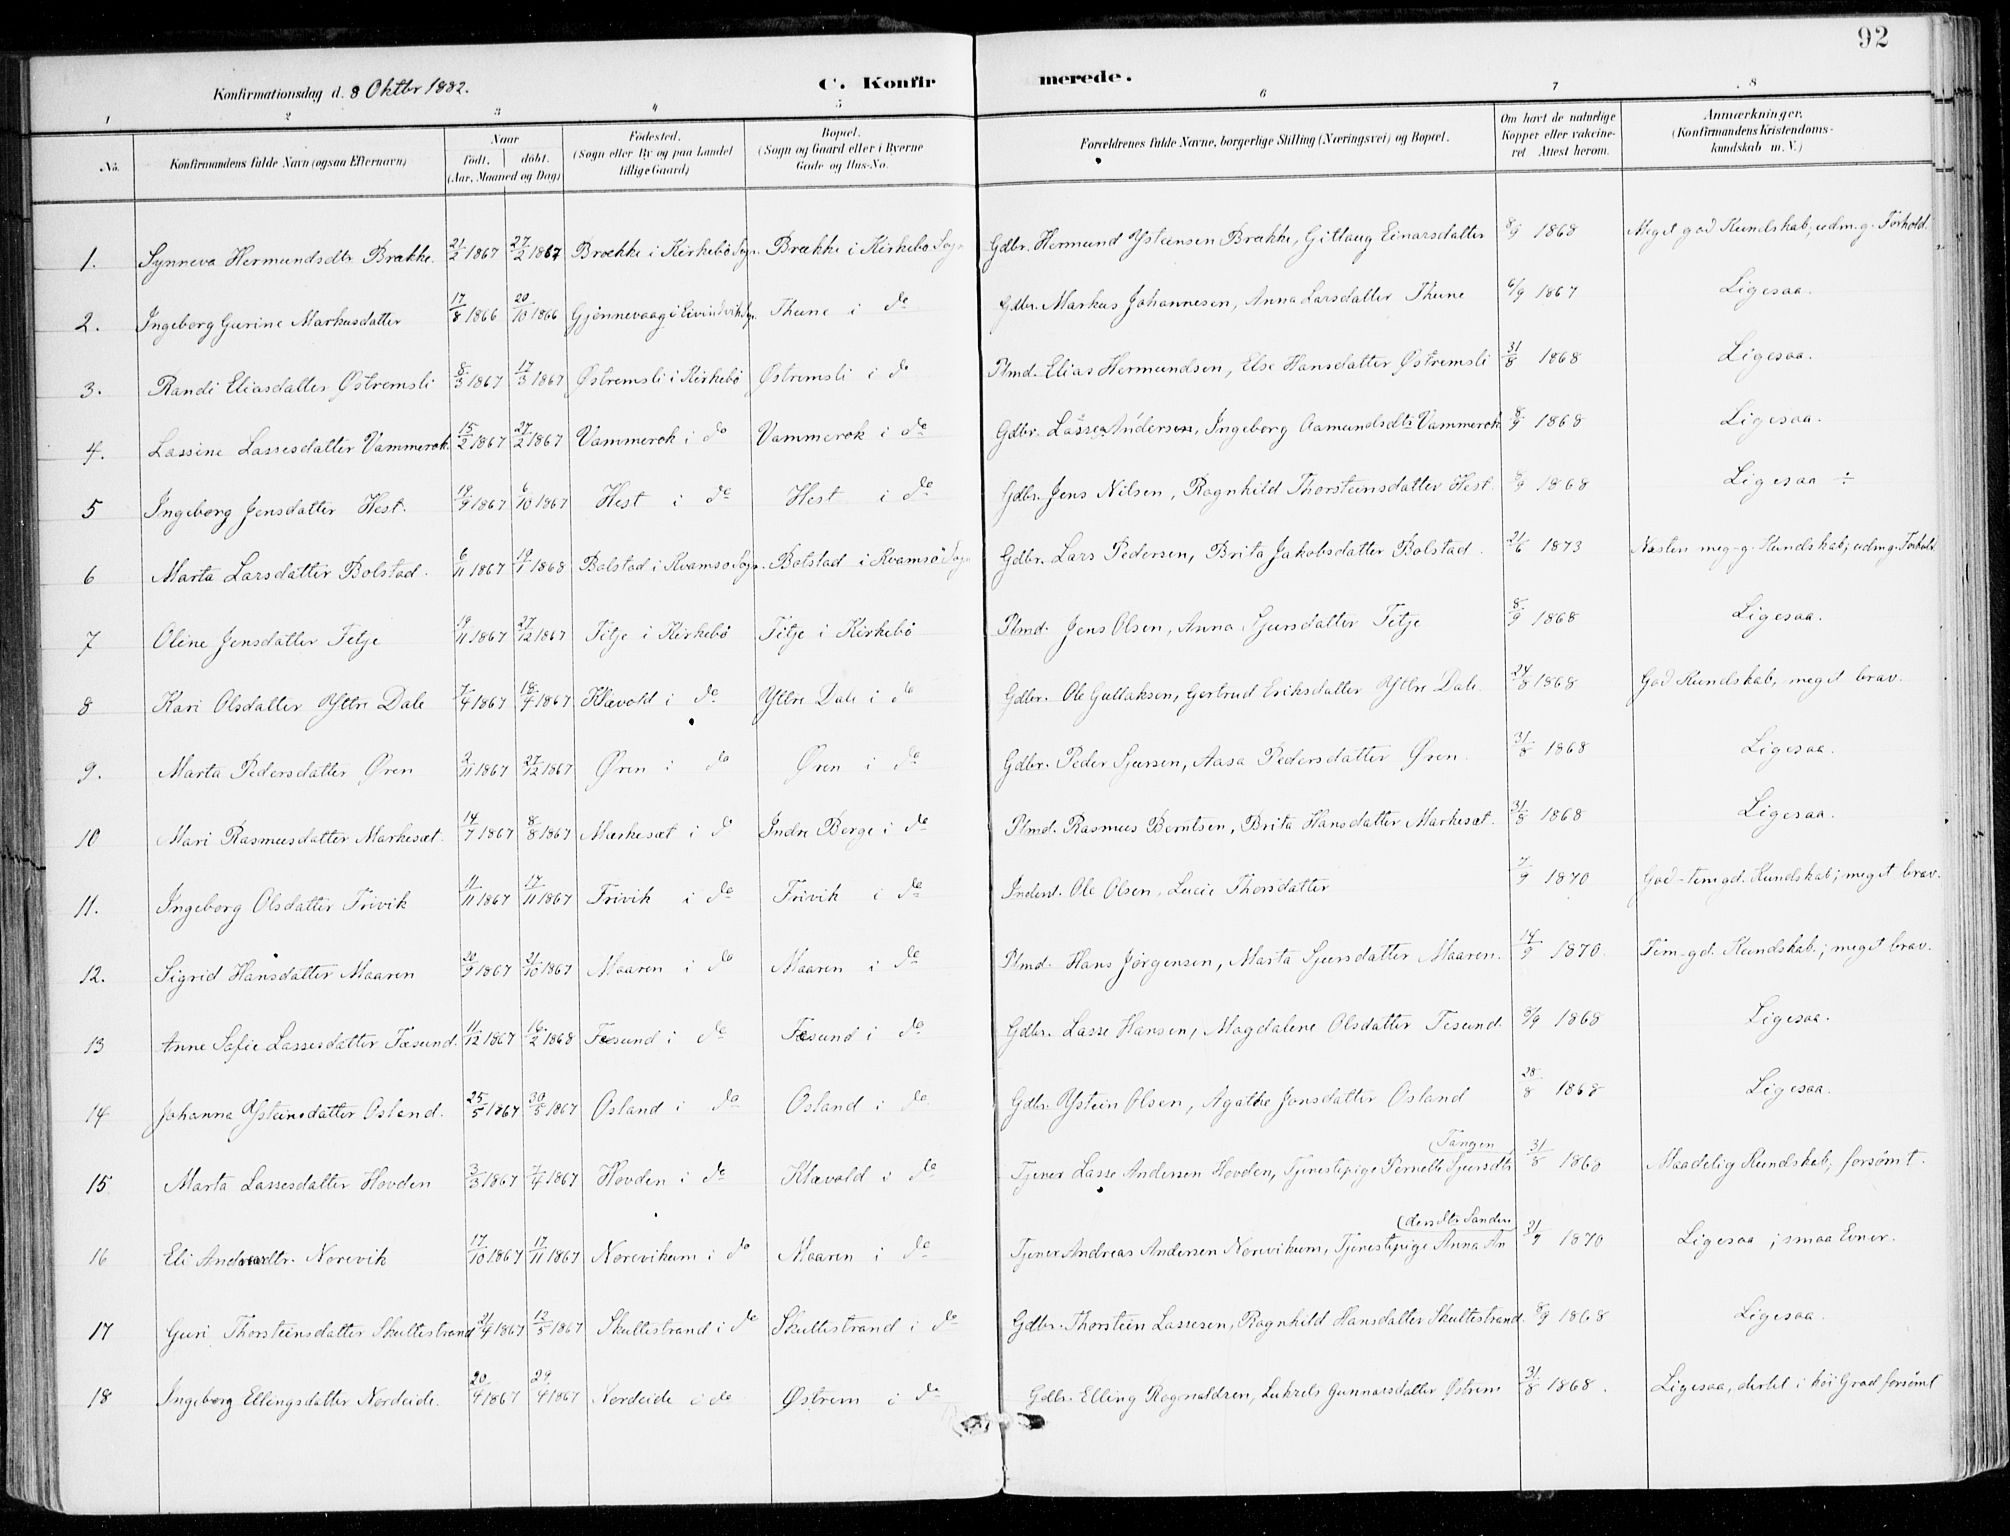 92
Konfirmationsdag d. 8 Oktbr 1882.
C. Konfirmerede.
1 2 3 4 5 6 7 8
No. Konfirmandens fulde Navn (ogsaa Efternavn) Naar født, døbt. (Aar, Maaned og Dag) Fødested. (Sogn eller By og paa Landet tillige Gaard) Bopæl. (Sogn og Gaard eller i Byerne Gade og Hus-No. Forældrenes fulde Navne, borgerlige Stilling (Næringsvei) og Bopæl. Om havt de naturlige Kopper eller vakcineret Attest herom. Anmærkninger. (Konfirmandens Kristendomskundskab m. V.)
1. Synneva Hermundsdtr Brække. 21/2 1867 27/2 1867 Brække i Kirkebø Sogn. Brække i Kirkebø Sogn Gdbr. Hermund Ysteinsen Brække, Gitlaug Einarsdatter 8/9 1868 Meget god Kundskab, udm. g. Forhold.
2. Ingeborg Gurine Markusdatter 17/8 1866 20/10 1866 Gjønnevaag i Eivindvik Sgn. Thune i do Gdbr. Markus Johannesen, Anna Larsdatter Thune 6/9 1867 Ligesaa.
3. Randi Eliasdatter Østremsli 8/3 1867 17/3 1867 Østremsli i Kirkebø Østremsli i do Plmd. Elias Hermundsen, Else Hansdatter Østremsli 31/8 1868 Ligesaa.
4. Lassine Lassesdatter Vammerok. 15/2 1867 27/2 1867 Vammerok i do Vammerok i do Gdbr. Lasse Andersen, Ingeborg Aamundsdtr Vammerok 8/9 1868 Ligesaa.
5 Ingeborg Jensdatter Hest. 19/9 1867 6/10 1867 Hest i do Hest i do Gdbr. Jens Nilsen, Ragnhild Thorsteinsdatter Hest. 8/9 1868 Ligesaa ÷
6 Marta Larsdatter Bolstad. 6/11 1867 19/1 1868 Bolstad i Kvamsø Sogn. Bolstad i Kvamsø Sogn Gdbr. Lars Pedersen, Brita Jakobsdatter Bolstad. 21/6 1873 Næsten meg. g. Kundskab; udm. g. Forhold
7 Oline Jensdatter Fitje 19/11 1867 27/12 1867 Fitje i Kirkebø Fitje i Kirkebø Plmd. Jens Olsen, Anna Sjursdatter Fitje 8/9 1868 Ligesaa.
8 Kari Olsdatter Yttre Dale 7/4 1867 18/4 1867 Klævold i do Yttre Dale i do Gdbr. Ole Gullaksen, Gertrud Eriksdatter Yttre Dale 24/8 1868 God Kundskab, meget brav.
9. Marta Pedersdatter Øren 2/11 1867 27/12 1867 Øren i do Øren i do Gdbr. Peder Sjursen, Aasa Pedersdatter Øren. 31/8 1868 Ligesaa.
10 Mari Rasmusdatter Markesæt. 14/7 1867 8/8 1867 Mærkesæt i d Indre Berge i do Plmd. Rasmus Berntsen, Brita Hansdatter Markesæt. 31/8 1868 Ligesaa.
11. Ingeborg Olsdatter Trivik 11/11 1867 17/11 1867 Trivik i do Trivik i do Inderst. Ole Olsen, Lucie Thorsdatter 7/9 1870 God-temgd. Kundskab; meget brav.
12. Sigrid Hansdatter Maaren 20/9 1867 21/10 1867 Maaren i do Maaren i do Plmd. Hans Jørgensen, Marta Sjursdatter Maaren. 14/9 1870. Tem-gd. Kundskab; meget brav.
13 Anne Sofie Lassesdatter Tæsund. 11/12 1867 16/2 1868 Tæsund i do Tæsund i do Gdbr. Lasse Hansen, Magdalene Olsdatter Tesund. 8/9 1868 Ligesaa.
14 Johanna Ysteinsdatter Osland. 25/5 1867 30/5 1867 Osland i do Osland i do Gdbr. Ystein Olsen, Agathe Jonsdatter Osland 28/8 1868 Ligesaa.
15 Marta Lassesdatter Hovden 3/3 1867 7/4 1867 Hovden i do Klævold i do Tjener Lasse Andersen Hovden, Tjenestepige Pernelle Sjursdtr (Tangen 31/8 1868 Maadelig Kundskab; forsømt.
16 Eli Andreasdtr. Norevik 17/10 1867 17/11 1867 Norevikum i do Maaren i do Tjener Andreas Andersen Norevikum, Tjenestepige Anna An (dersdtr Sanden 21/9 1870 Ligesaa; smaa Evner.
17 Guri Thorsteinsdatter Skultestrand 21/4 1867 12/5 1867 Skultestrand i do Skultestrand i do Gdbr. Thorstein Lassesen, Ragnhild Hansdatter Skultestrand. 8/9 1868 Ligesaa.
18 Ingeborg Ellingsdatter Nordeide. 20/4 1867 29/4 1867 Nordeide i do Østrem i do Gdbr. Elling Ragnaldsen, Lukrets Gunnarsdatter Østrem 31/8 1868. Ligesaa, dertil i høi Grad forsømt